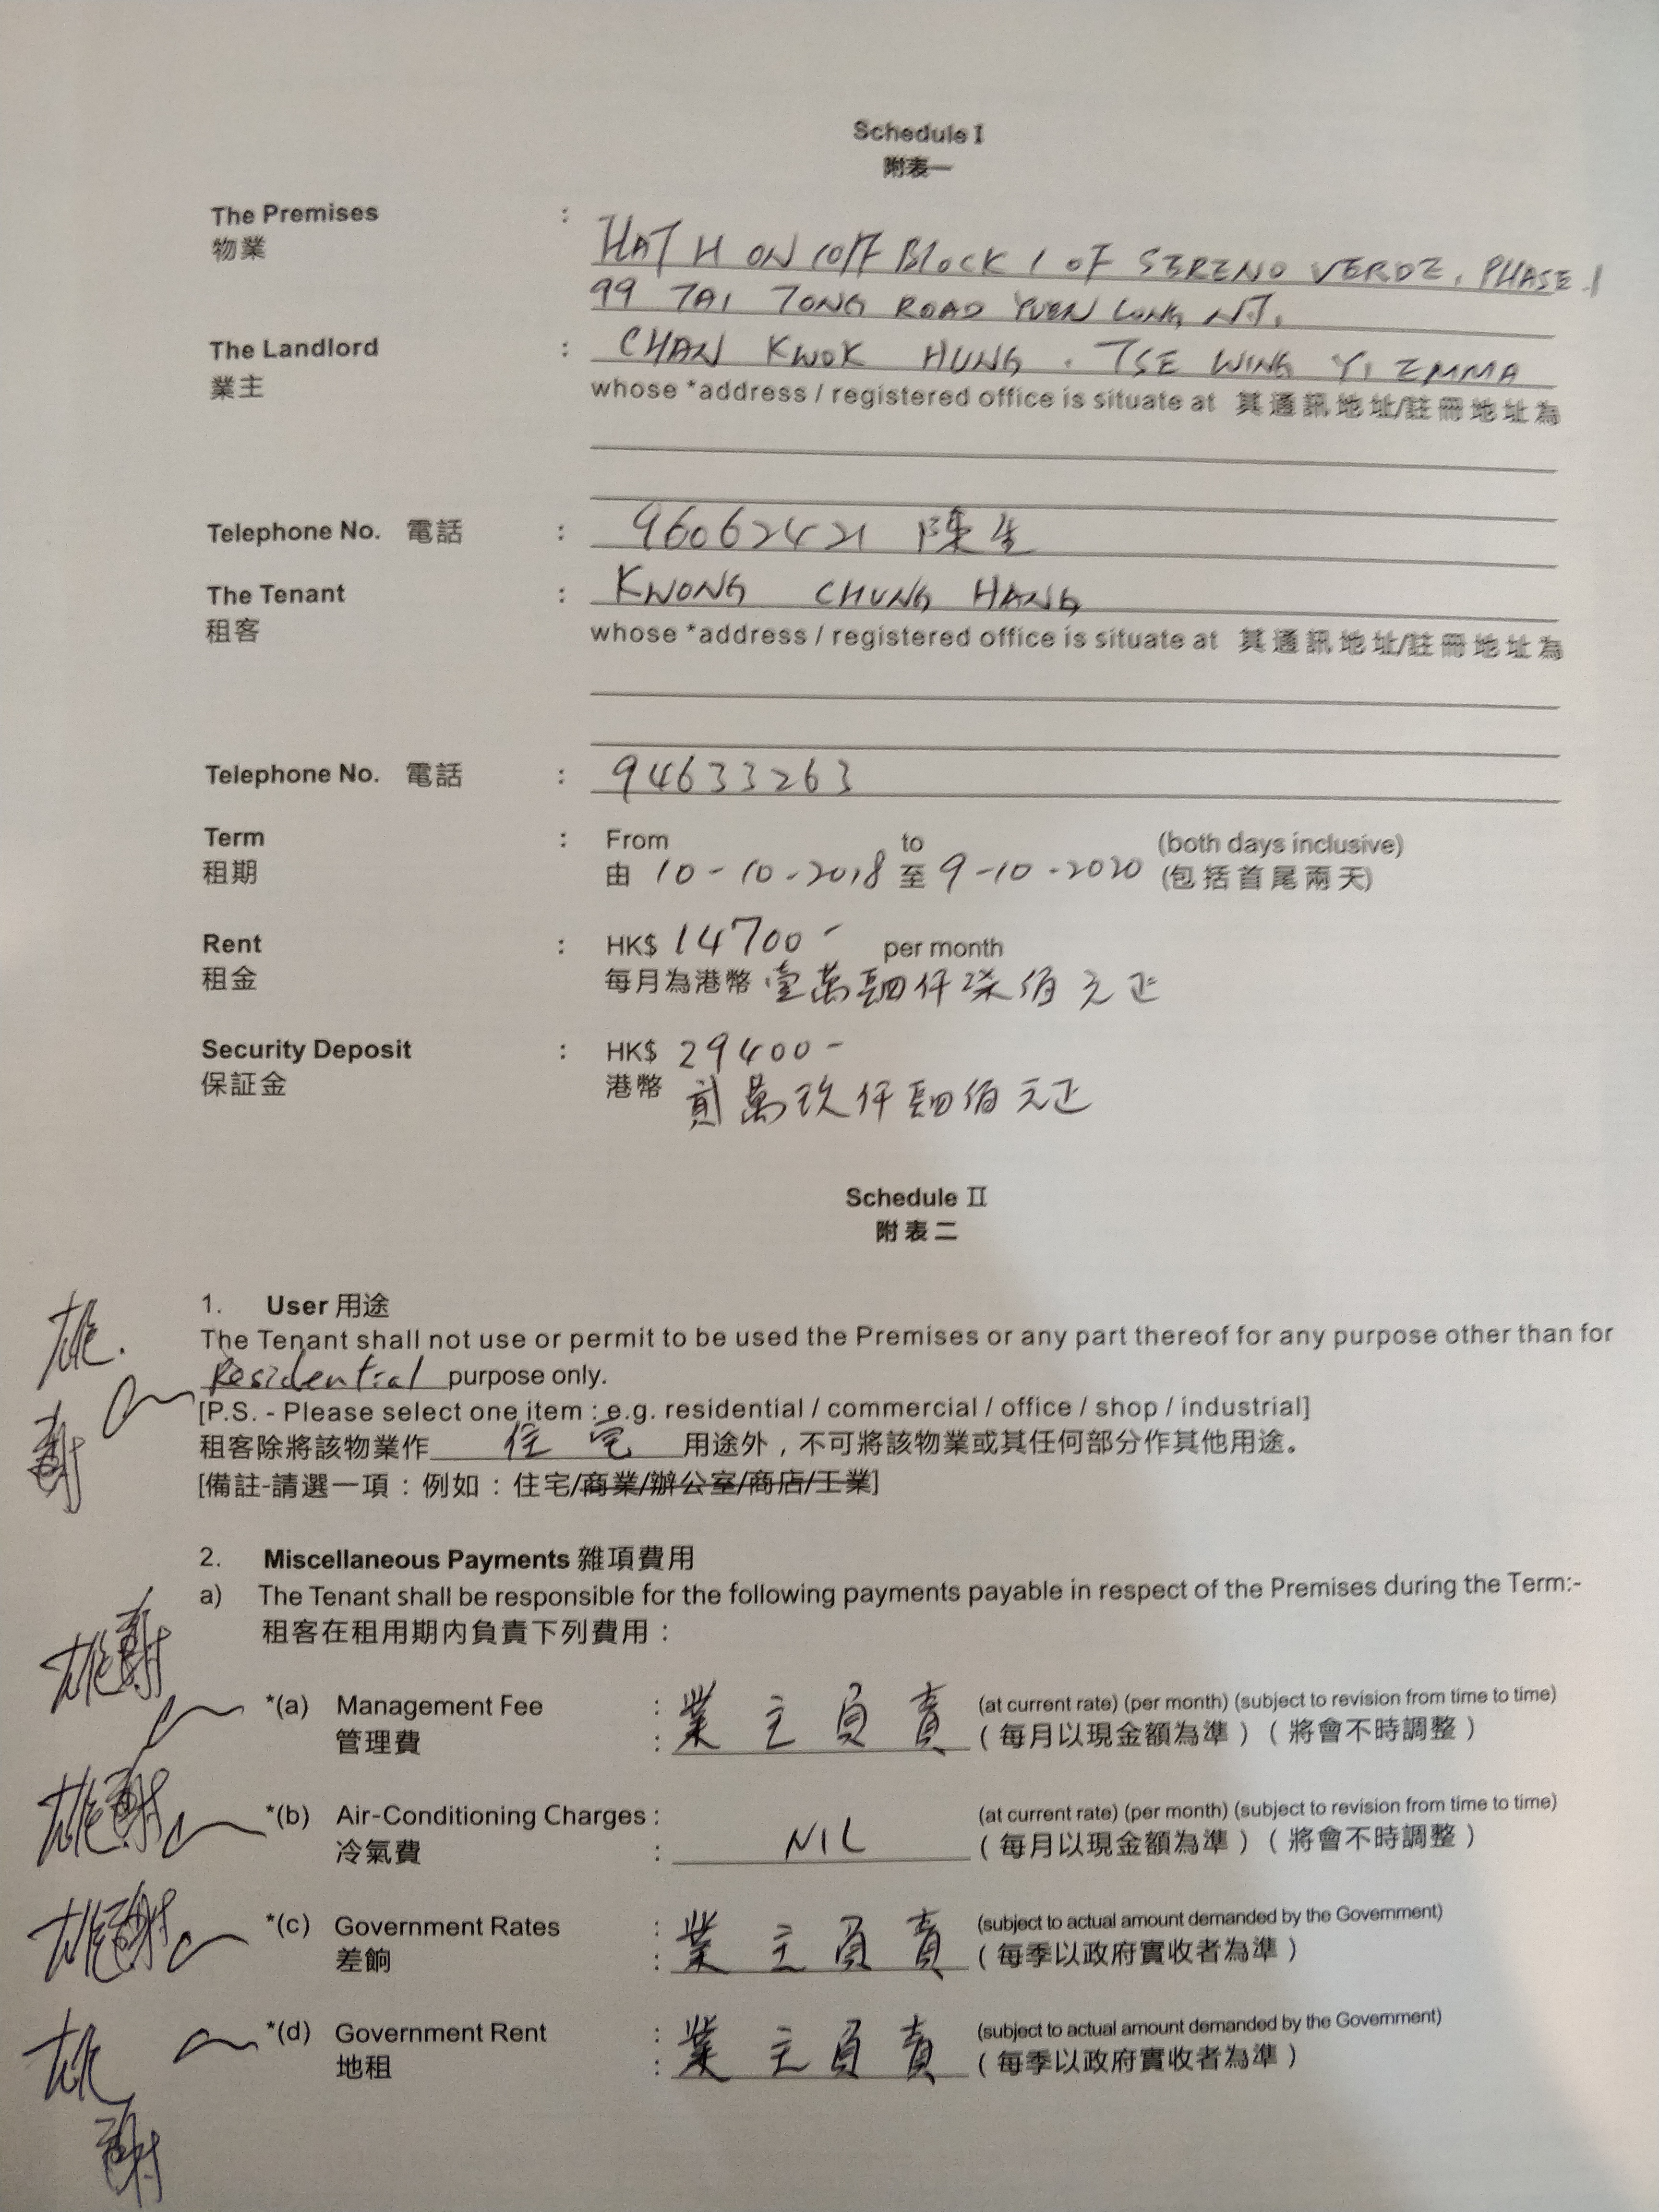 Schedule I
附表一
The Premises : FLAT H ON 10/F BLOCK 1 OF SERENO VERDE, PHASE 1
物業
99 TAI TONG ROAD YUEN LONG, N.T.
The Landlord : CHAN KWOK HUNG . TSE WING YI EMMA
業主 whose *address / registered office is situate at 其通訊地址/註冊地址為
Telephone No. 電話 : 96062421 陳生
The Tenant : KWONG CHUNG HANG
租客 whose *address / registered office is situate at 其通訊地址/註冊地址為
Telephone No. 電話 : 94633263
Term : From to (both days inclusive)
租期 由 10-10-2018 至 9-10-2020 (包括首尾兩天)
Rent : HK$ 14700- per month
租金 每月為港幣 壹萬肆仟柒佰元正
Security Deposit : HK$ 29400-
保証金 港幣 貳萬玖仟肆佰元正
Schedule II
附表二
1. User 用途
The Tenant shall not use or permit to be used the Premises or any part thereof for any purpose other than for
Residential purpose only.
[P.S. - Please select one item : e.g. residential / commercial / office / shop / industrial]
租客除將該物業作 住宅 用途外，不可將該物業或其任何部分作其他用途。
[備註-請選一項：例如：住宅/商業/辦公室/商店/工業]
2. Miscellaneous Payments 雜項費用
a) The Tenant shall be responsible for the following payments payable in respect of the Premises during the Term:-
租客在租用期內負責下列費用：
*(a) Management Fee : 業主負責 (at current rate) (per month) (subject to revision from time to time)
管理費 : (每月以現金額為準)(將會不時調整)
*(b) Air-Conditioning Charges : (at current rate) (per month) (subject to revision from time to time)
冷氣費 : NIL (每月以現金額為準)(將會不時調整)
*(c) Government Rates : 業主負責 (subject to actual amount demanded by the Government)
差餉 : (每季以政府實收者為準)
*(d) Government Rent : 業主負責 (subject to actual amount demanded by the Government)
地租 : (每季以政府實收者為準)